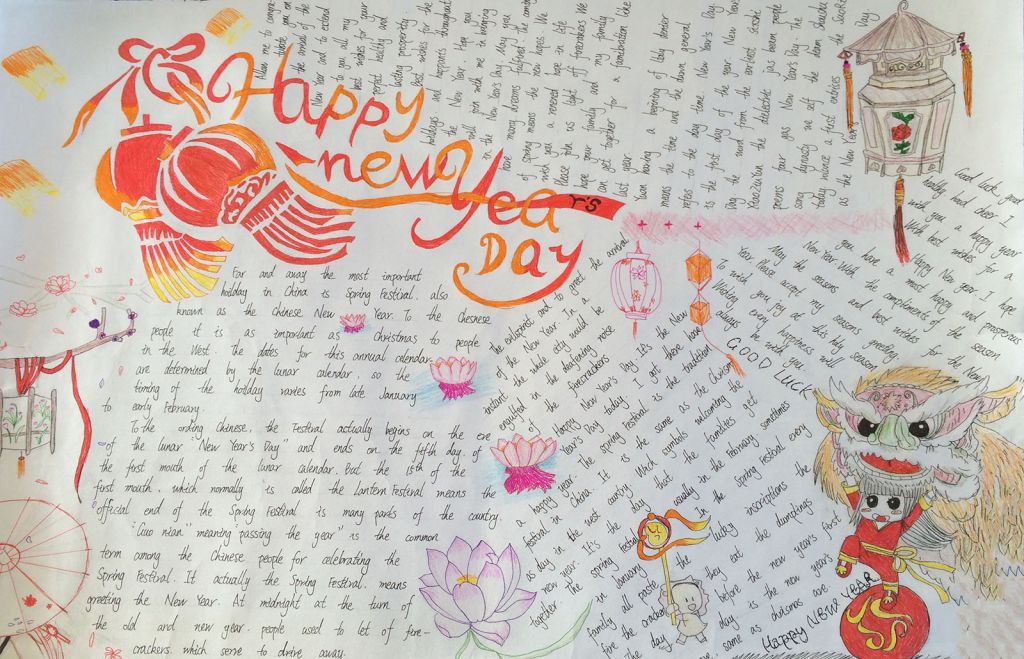 Happy
new Year's
DAY
Far and away the most important
holiday in China is Spring Festival. also
known as the Chinese New Year. To the Chesnese
people it is as important as christmas to people
in the West. The dates for this annual calendar
are determined by the lunar calendar, so the
timing of the holiday varies from late January
to early February.
To the ording Chinese, the Festival actually begins on the eve
of the lunar "New Year's Day" and ends on the fifth day of
the first mouth of the lunar calendar. Boot the 15th of the
first mouth, which normally is called the Lantern Festival means the
official end of the Spring Festival is many pards of the country.
"Guo nian" meaning "passing the year" is the common
term among the Chinese people for celebrating the
Spring Festival. It actually the Spring Festival. means
greeting the New Year. At midnight at the turn of
the old and new year. people used to let of fire-
crackers. which serve to drive away.
the evilspirst and to greet the arrival
instant of the New Year. In a
engulfed in the whole city would be
the deafening noise
firecrackers
Happy New Year's Day. It's the New
Year's Day today. I got there hope
a happy year. The Spring Festival is the tradition
festival in China. It is the same as the Chrism
as day in the west country. Wach symbols welcoming the
new year. It's the day that the families get
together. The spring festival usually in the February sometimes
in January. In the Spring Festival every
family all paste the lucky inscriptions
the day before they eat the dumplings the
day is the new year's first
same as chrismas are
GOOD LUCK
Good luck, good
health, hood cheer. I
with you a happy year
With best wishes for a
Happy New year. I hope
you have a most happy and prosperous
New Year. With the compliments of the season
May the seasons and best wishes for the New
Year Please accept my seasons greeting
To wich you joy at this holy season
Wishing every happiness will
always be with you.
Allow me to congra-
tulate you on
the arrival of the
New Year and to extend
to you all my
best wishes for your
perfect healthy and
lasting prosperity
Best wishes for the
holidays and happniss throughout
the New Year. Here you
will join with me in bringing
in the New Year's Day. May you
have many dreams fulfilled the coming
of spring means the new hopes We
wish you a renewed hope in life
Please join us light off firecrakers We
hope your family and my family
can get together for a celebration like
last year
Yuan having a berining of tday denier
means the time and the dawn general
refers to the day time. New Year's Day
is the first day of the year New Year's
Day the word from the earliest scuthe
Xiao Zu Yun the dielectric jas beam people
poems four gas New Year's Day. the
song dynasty we self the dream shouhu
today nuance a first entries the SuoRE
as the New Year's Day.
HAPPY NEW YEAR